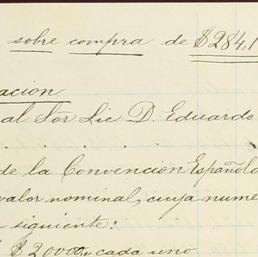 sobre compra de $284,1
acion
al Sor Lic D. Eduardo
. . . . .
de la Convencion Española
valor nominal, cuya nume
siguiente:
$2000 cada uno